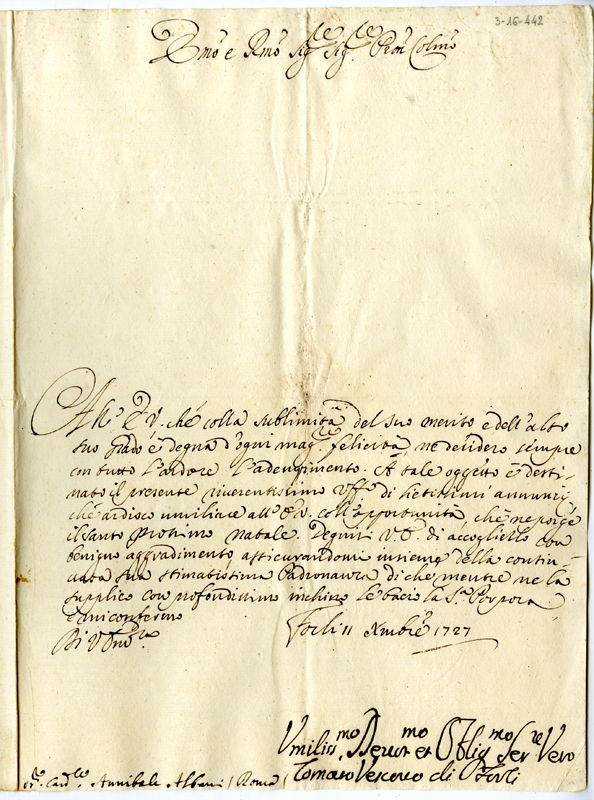 3-16-442
Emo e Rmo Sigre Sigre Pron Colmo
All' E.V. che colla sublimità del suo merito e dell'alto
suo grado è degna d'ogni magre felicità, ne desidero sempre
con tutto l'ardore l'adempimento. A tale oggetto è desti-
nato il presente riverentissimo Uffo di lietissimi annunzj
che ardisco umiliare all' E.V. coll'opportunità, che ne porge
il santo prossimo natale. Degnisi V.E. di accoglierlo con
benigno aggradimento, assicurandomi insieme della contin-
uata sua stimatissima Padronanza, di che mentre ne la
supplico con profondissimo inchino le bacio la Sa Porpora
e mi confermo
Di V. Emza
Forlì 11 Xmbre 1727
Umilissmo Devotmo et Obligmo Serre Vero
Tomaso Vescovo di Forlì
Sr. Cardle Annibale Albani / Roma /